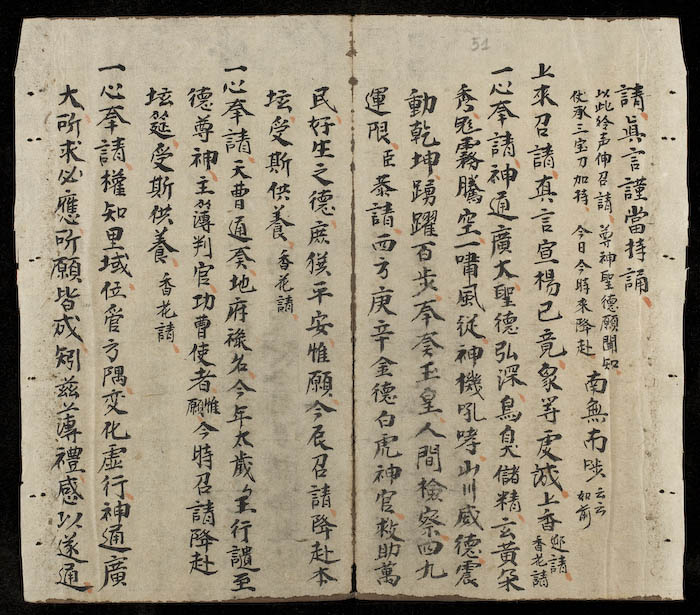 請真言謹當持誦
以此鈴声伸召請 尊神聖德願聞知
仗承三宝力加持 今日今時來降赴
南無布 云云如前
上來召請真言宣揚已竟象等虔誠上香 迎請香花請
一心奉請神通廣大聖德弘深鳥儲精云黃朵
秀霧騰空一嘯風從神機吼哮山川威德震
動乾坤踴躍百步奉奏玉皇人間檢察四九
運限臣恭請西方庚辛金德白虎神官救助萬
民好生之德庶獲平安惟願今辰召請降赴本
坛受斯供養 香花請
一心奉請天曹通奏地府祿名今年太歲王行譴至
德尊神主簿判官功曹使者惟願今時召請降赴
坛筵受斯供養 香花請
一心奉請權知里域位管方隅变化虛行神通廣
大所求必應所願皆成矧茲薄禮感以遂通
51